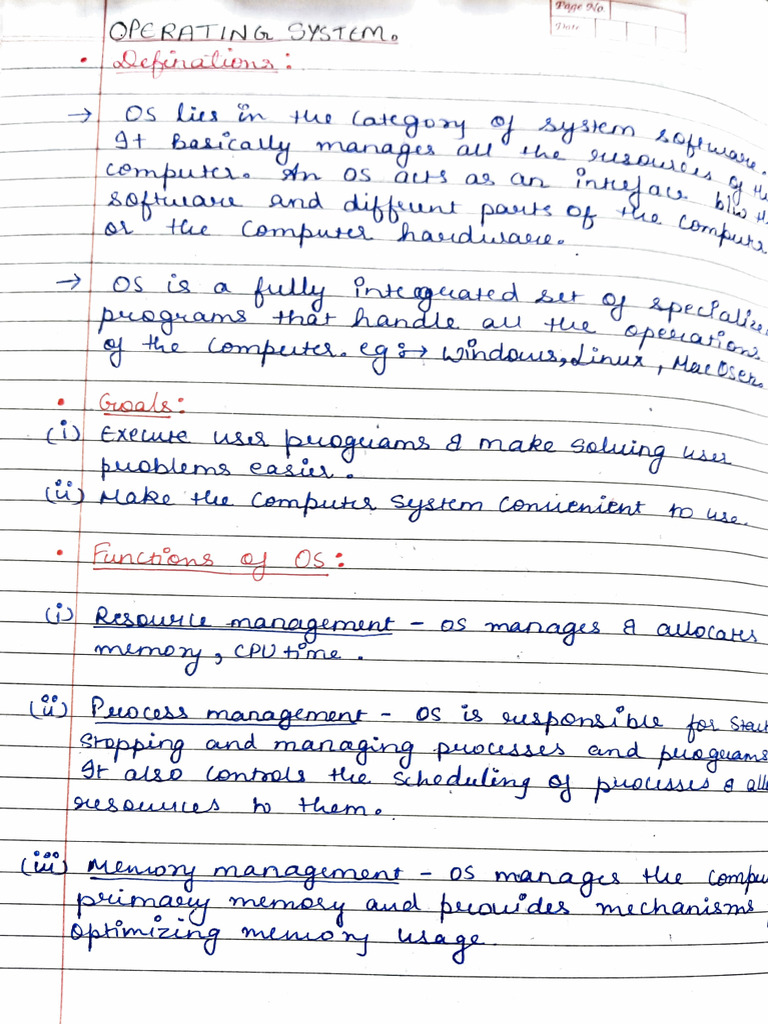 Page No.
Date
OPERATING SYSTEM.
• Definations:
→ OS lies in the category of system software.
It basically manages all the resources of the
computer. An OS acts as an interface b/w th
software and different parts of the computer
or the computer hardware.
→ OS is a fully integrated set of specialize
programs that handle all the operations
of the computer. eg :→ Windows, Linux, Mac OS etc.
• Goals:
(i) Execute user programs & make solving user
problems easier.
(ii) Make the computer system convienient to use.
• Functions of OS:
(i) Resource management - OS manages & allocates
memory, CPU time.
(ii) Process management - OS is responsible for star
stopping and managing processes and programs
It also controls the scheduling of processes & all
resources to them.
(iii) Memory management - OS manages the compu
primary memory and provides mechanisms
optimizing memory usage.